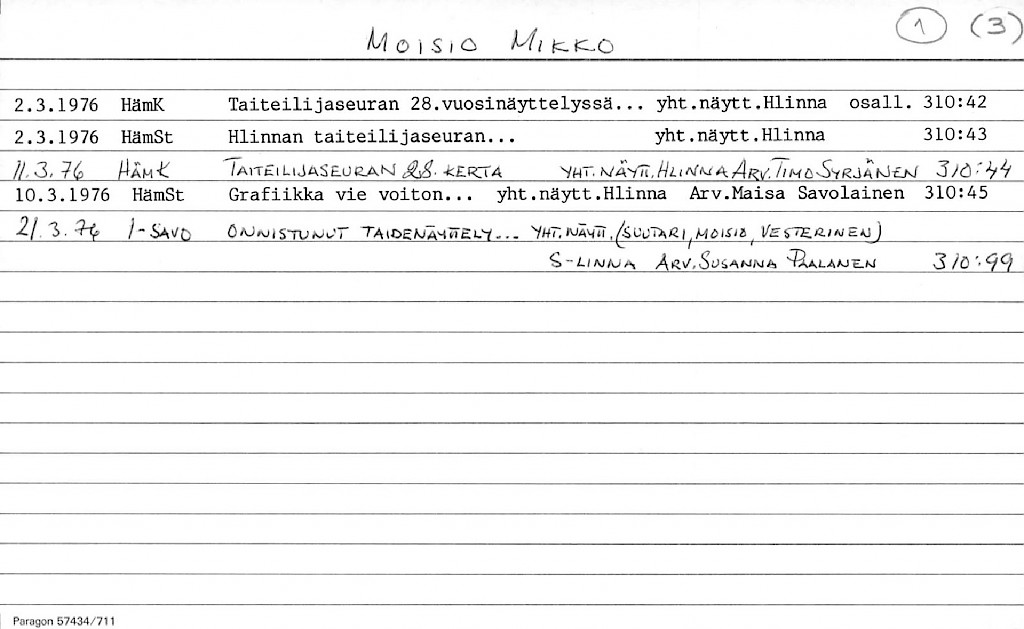 Moisio Mikko 1 (3)
2.3.1976 HämK Taiteilijaseuran 28.vuosinäyttelyssä... yht.näytt.Hlinna osall. 310:42
2.3.1976 HämSt Hlinnan taiteilijaseuran... yht.näytt.Hlinna 310:43
11.3.76 HämK TAITEILIJASEURAN 28. KERTA YHT.NÄYTT.HLINNA ARV.TIMO SYRJÄNEN 310:44
10.3.1976 HämSt Grafiikka vie voiton... yht.näytt.Hlinna Arv.Maisa Savolainen 310:45
21.3.76 I-SAVO ONNISTUNUT TAIDENÄYTTELY... YHT.NÄYTT.(SUUTARI, MOISIO, VESTERINEN)
S-LINNA ARV.SUSANNA PAALANEN 310:99
Paragon 57434/711